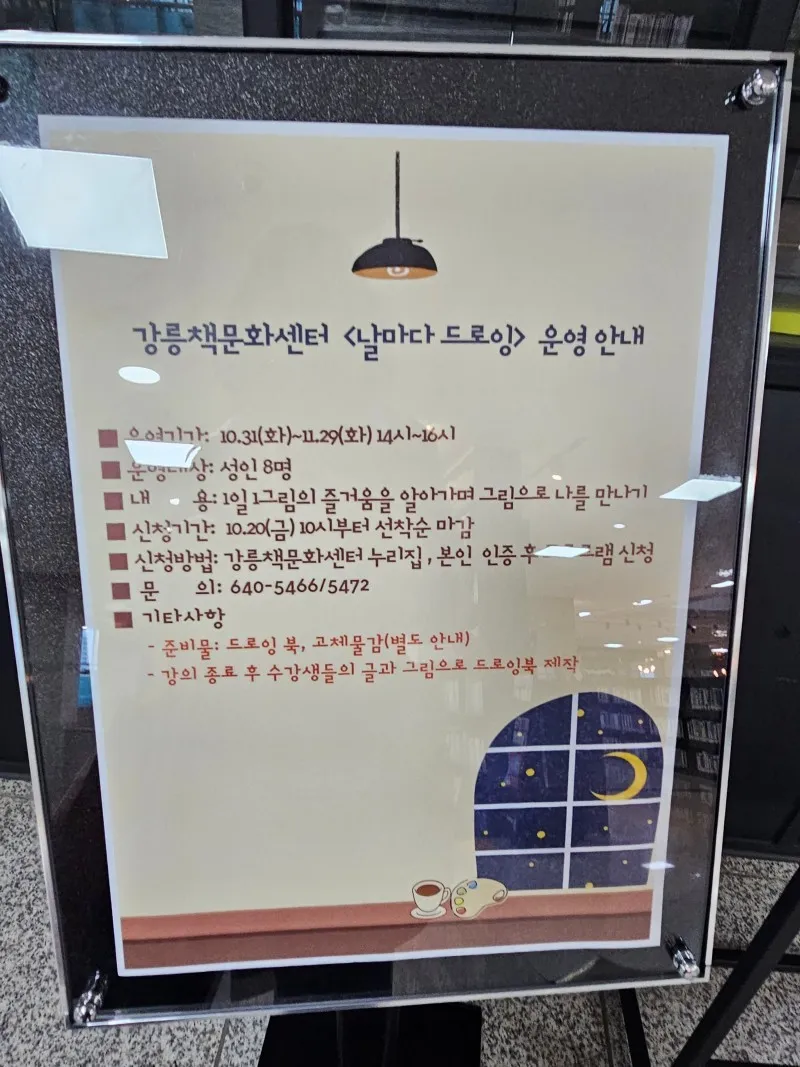 강릉책문화센터 <날마다 드로잉> 운영 안내
■ 운영기간: 10.31(화)~11.29(화) 14시~16시
■ 운영대상: 성인 8명
■ 내 용: 1일 1그림의 즐거움을 알아가며 그림으로 나를 만나기
■ 신청기간: 10.20(금) 10시부터 선착순 마감
■ 신청방법: 강릉책문화센터 누리집, 본인 인증 후 프로그램 신청
■ 문 의: 640-5466/5472
■ 기타사항
- 준비물: 드로잉 북, 고체물감(별도 안내)
- 강의 종료 후 수강생들의 글과 그림으로 드로잉북 제작